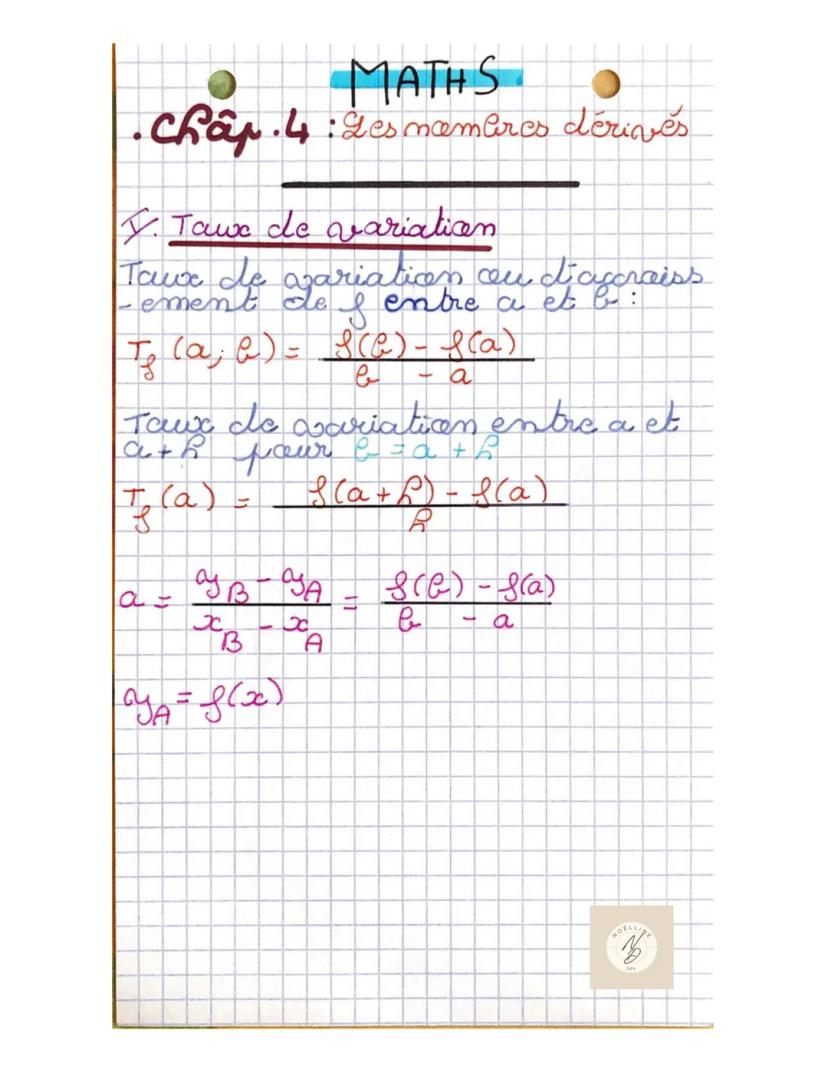 MATHS
.Châp.4 : Les nombres dérivés
I. Taux de variation
Taux de variation ou d'accroiss
-ement de f entre a et b :
Tf (a; b) = f(b) - f(a)
b - a
Taux de variation entre a et
a + h pour b = a + h
Tf (a) = f(a + h) - f(a)
h
a = yB - yA = f(b) - f(a)
xB - xA b - a
yA = f(x)
NOËLLINE